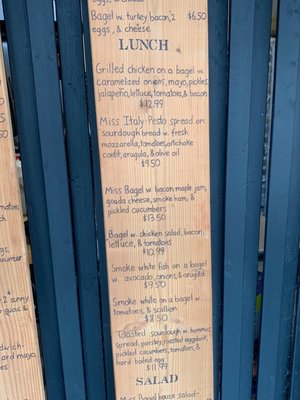 eggs, & cheese
Bagel w. turkey bacon, 2 $6.50
eggs, & cheese
LUNCH
Grilled chicken on a bagel w.
caramelized onions, mayo, pickles
jalapeño, lettuce, tomatoes, & bacon
$12.99
Miss Italy-Pesto spread on
sourdough bread w. fresh
mozzarella, tomatoes, artichoke
confit, arugula, & olive oil
$9.50
Miss Bagel w. bacon maple jam,
gouda cheese, smoke ham, &
pickled cucumbers
$13.50
Bagel w. chicken salad, bacon,
lettuce, & tomatoes
$10.99
Smoke white fish on a bagel
w. avocado, onions, & arugula
$9.50
Smoke white on a bagel w.
tomatoes, & scallion
$8.50
Toasted sourdough w. hummus
spread, parsley, roasted eggplant,
pickled cucumbers, tomatoes, &
hard boiled egg
$11.99
SALAD
Miss Bagel house salad-